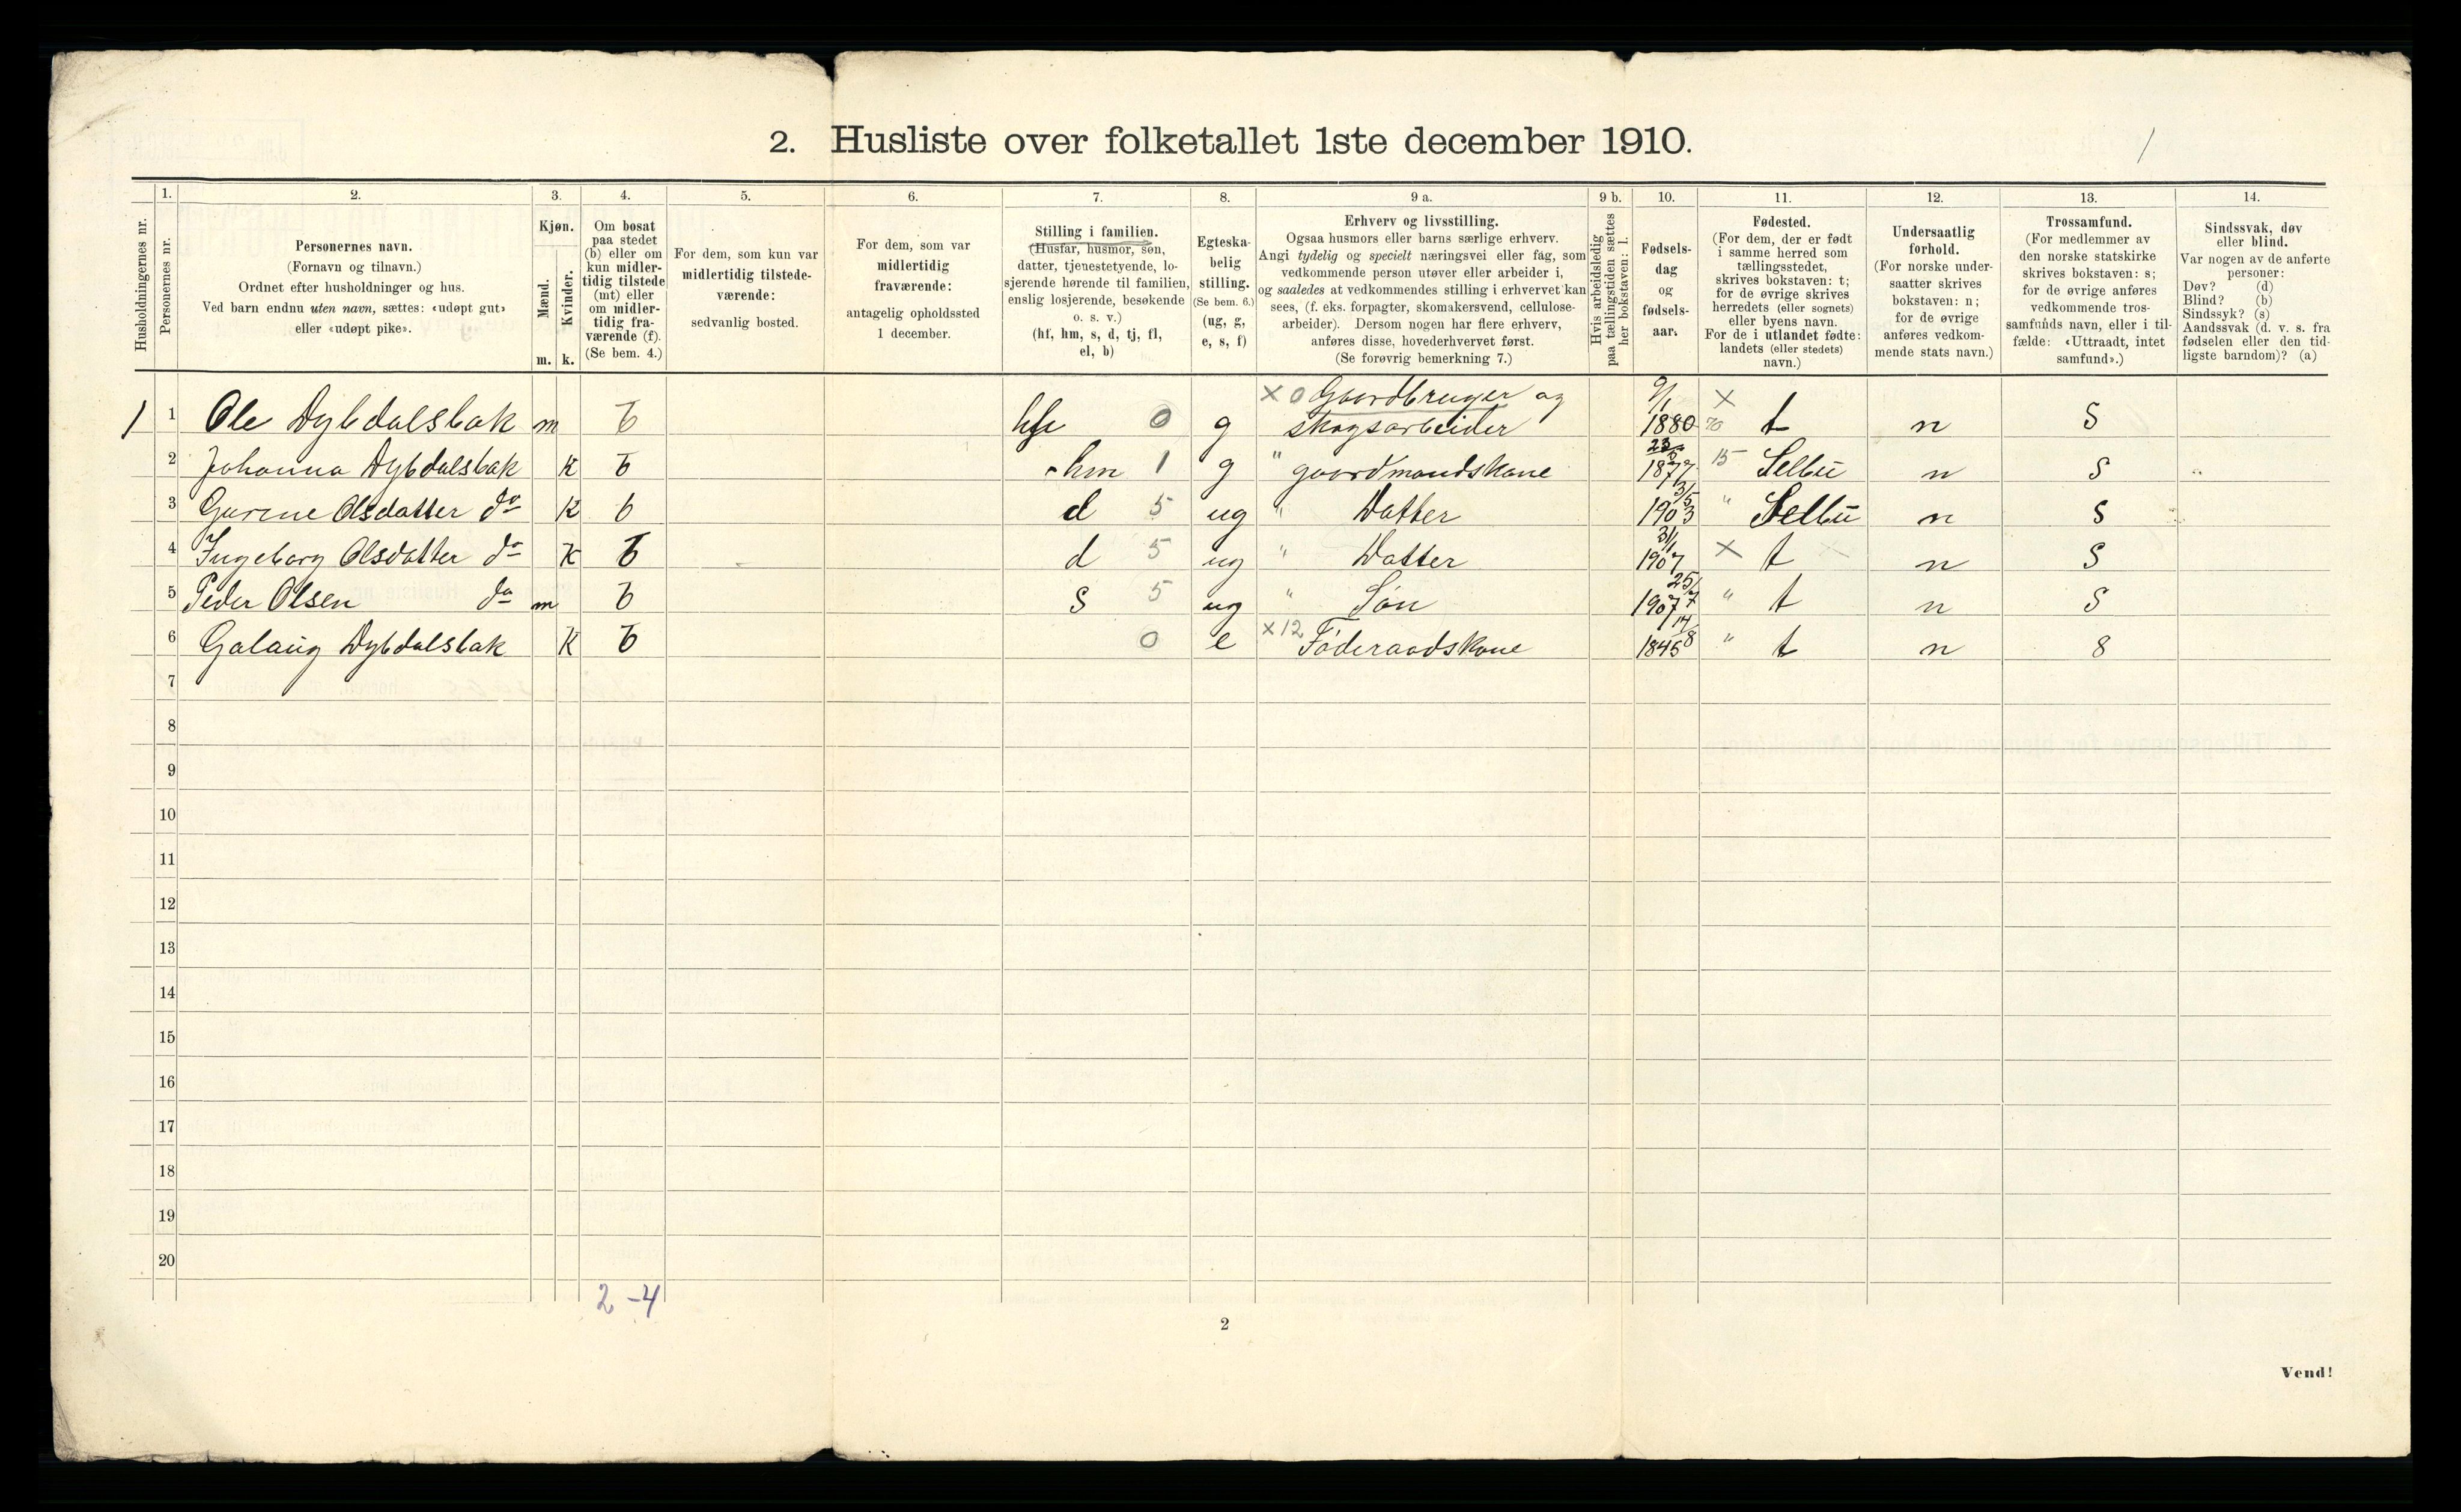 2. Husliste over folketallet 1ste december 1910.
/
1. 2. 3. 4. 5. 6. 7. 8. 9 a. 9 b. 10. 11. 12. 13. 14.
Husholdningernes nr.
Personernes nr.
Personernes navn.
(Fornavn og tilnavn.)
Ordnet efter husholdninger og hus.
Ved barn endnu uten navn, sættes: «udøpt gut»
eller «udøpt pike».
Kjøn.
Mænd.
Kvinder.
m. k.
Om bosat
paa stedet
(b) eller om
kun midler-
tidig tilstede
(mt) eller
om midler-
tidig fra-
værende (f).
(Se bem. 4.)
For dem, som kun var
midlertidig tilstede-
værende:
sedvanlig bosted.
For dem, som var
midlertidig
fraværende:
antagelig opholdssted
1 december.
Stilling i familien.
(Husfar, husmor, søn,
datter, tjenestetyende, lo-
sjerende hørende til familien,
enslig losjerende, besøkende
o. s. v.)
(hf, hm, s, d, tj, fl,
el, b)
Egteska-
belig
stilling.
(Se bem. 6.)
(ug, g,
e, s, f)
Erhverv og livsstilling.
Ogsaa husmors eller barns særlige erhverv.
Angi tydelig og specielt næringsvei eller fag, som
vedkommende person utøver eller arbeider i,
og saaledes at vedkommendes stilling i erhvervet kan
sees, (f. eks. forpagter, skomakersvend, cellulose-
arbeider). Dersom nogen har flere erhverv,
anføres disse, hovederhvervet først.
(Se forøvrig bemerkning 7.)
Hvis arbeidsledig
paa tællingstiden sættes
her bokstaven: l.
Fødsels-
dag
og
fødsels-
aar.
Fødested.
(For dem, der er født
i samme herred som
tællingsstedet,
skrives bokstaven: t;
for de øvrige skrives
herredets (eller sognets)
eller byens navn.
For de i utlandet fødte:
landets (eller stedets)
navn.)
Undersaatlig
forhold.
(For norske under-
saatter skrives
bokstaven: n;
for de øvrige
anføres vedkom-
mende stats navn.)
Trossamfund.
(For medlemmer av
den norske statskirke
skrives bokstaven: s;
for de øvrige anføres
vedkommende tros-
samfunds navn, eller i til-
fælde: «Uttraadt, intet
samfund».)
Sindssvak, døv
eller blind.
Var nogen av de anførte
personer:
Døv? (d)
Blind? (b)
Sindssyk? (s)
Aandssvak (d. v. s. fra
fødselen eller den tid-
ligste barndom)? (a)
× 0 Gaardbruger og 9/1 ×
1 1 Ole Dybdalsbak m b hf 0 g skogsarbeider 1880 t n s
2 Johanna Dybdalsbak k b hm 1 g " gaardmandskone 1877 15 Selbu n s
3 Gurine Olsdatter do k b d 5 ug " Datter 31/5 1903 " Selbu n s
4 Ingeborg Olsdatter do k b d 5 ug " Datter 31/1 1907 × t × n s
5 Peder Olsen do m b s 5 ug " Søn 25/7 1907 " t n s
6 Golaug Dybdalsbak k b 0 e × 12 Føderaadskone 14/8 1845 " t n s
7
8
9
10
11
12
13
14
15
16
17
18
19
20
2 - 4
2
Vend!